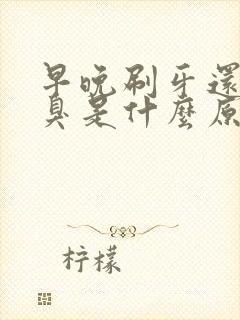 早晚刷牙還
臭是什麼原
柠檬